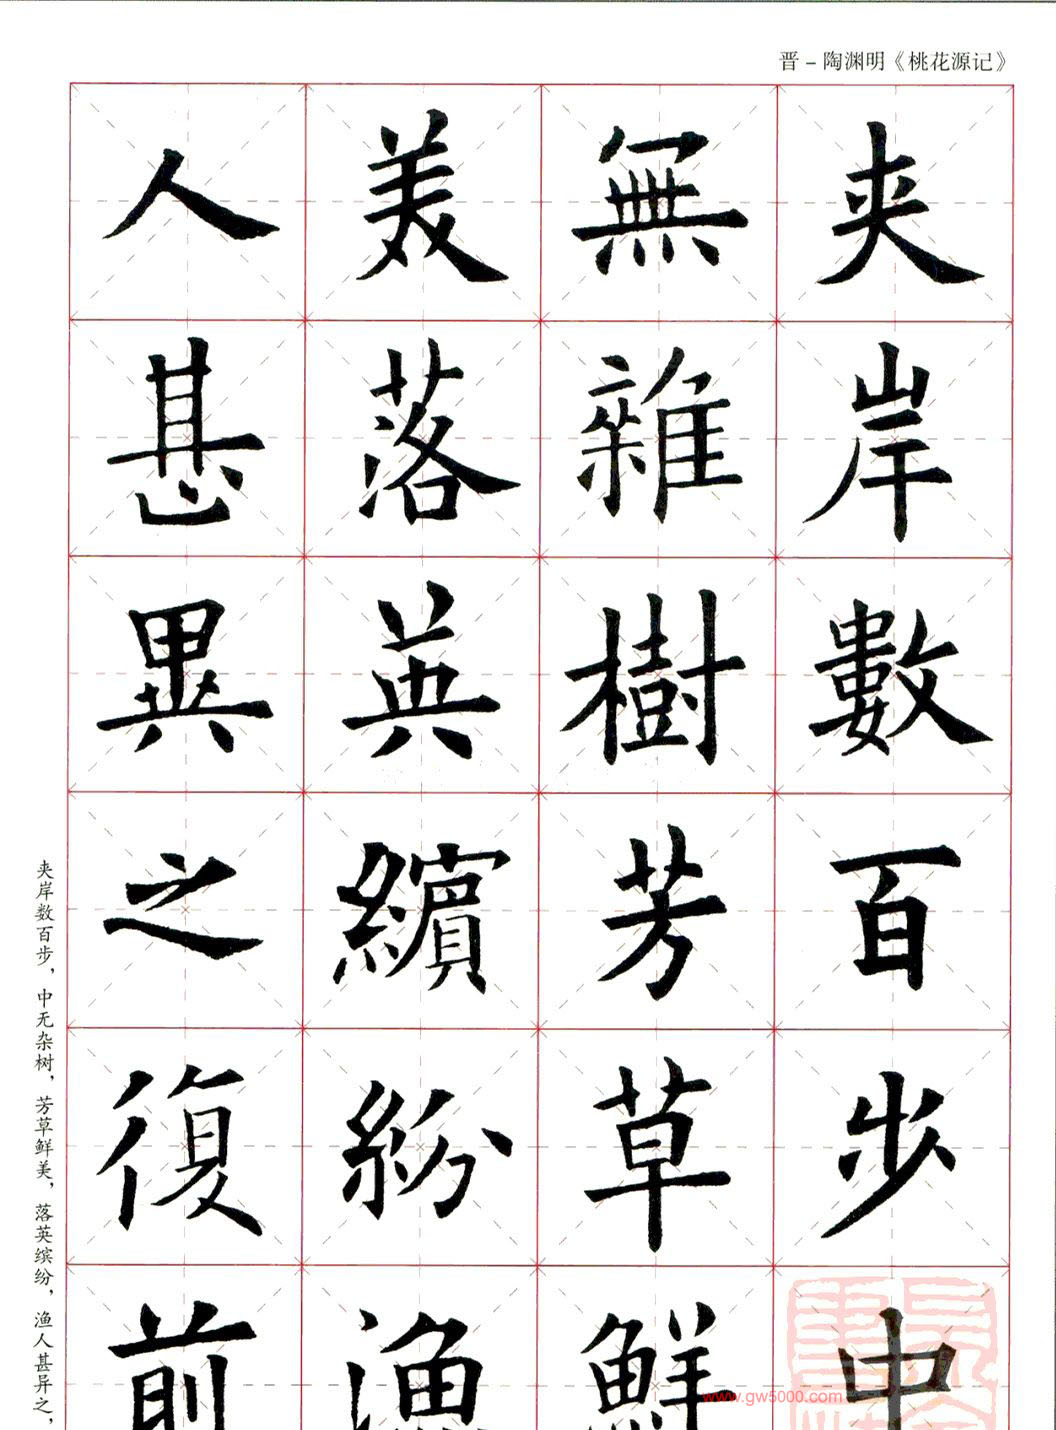 晋－陶渊明《桃花源记》
夹岸數百步中
無雜樹芳草鮮
美落英繽紛漁
人甚異之復前
夹岸数百步，中无杂树，芳草鲜美，落英缤纷，渔人甚异之，
www.gw5000.com